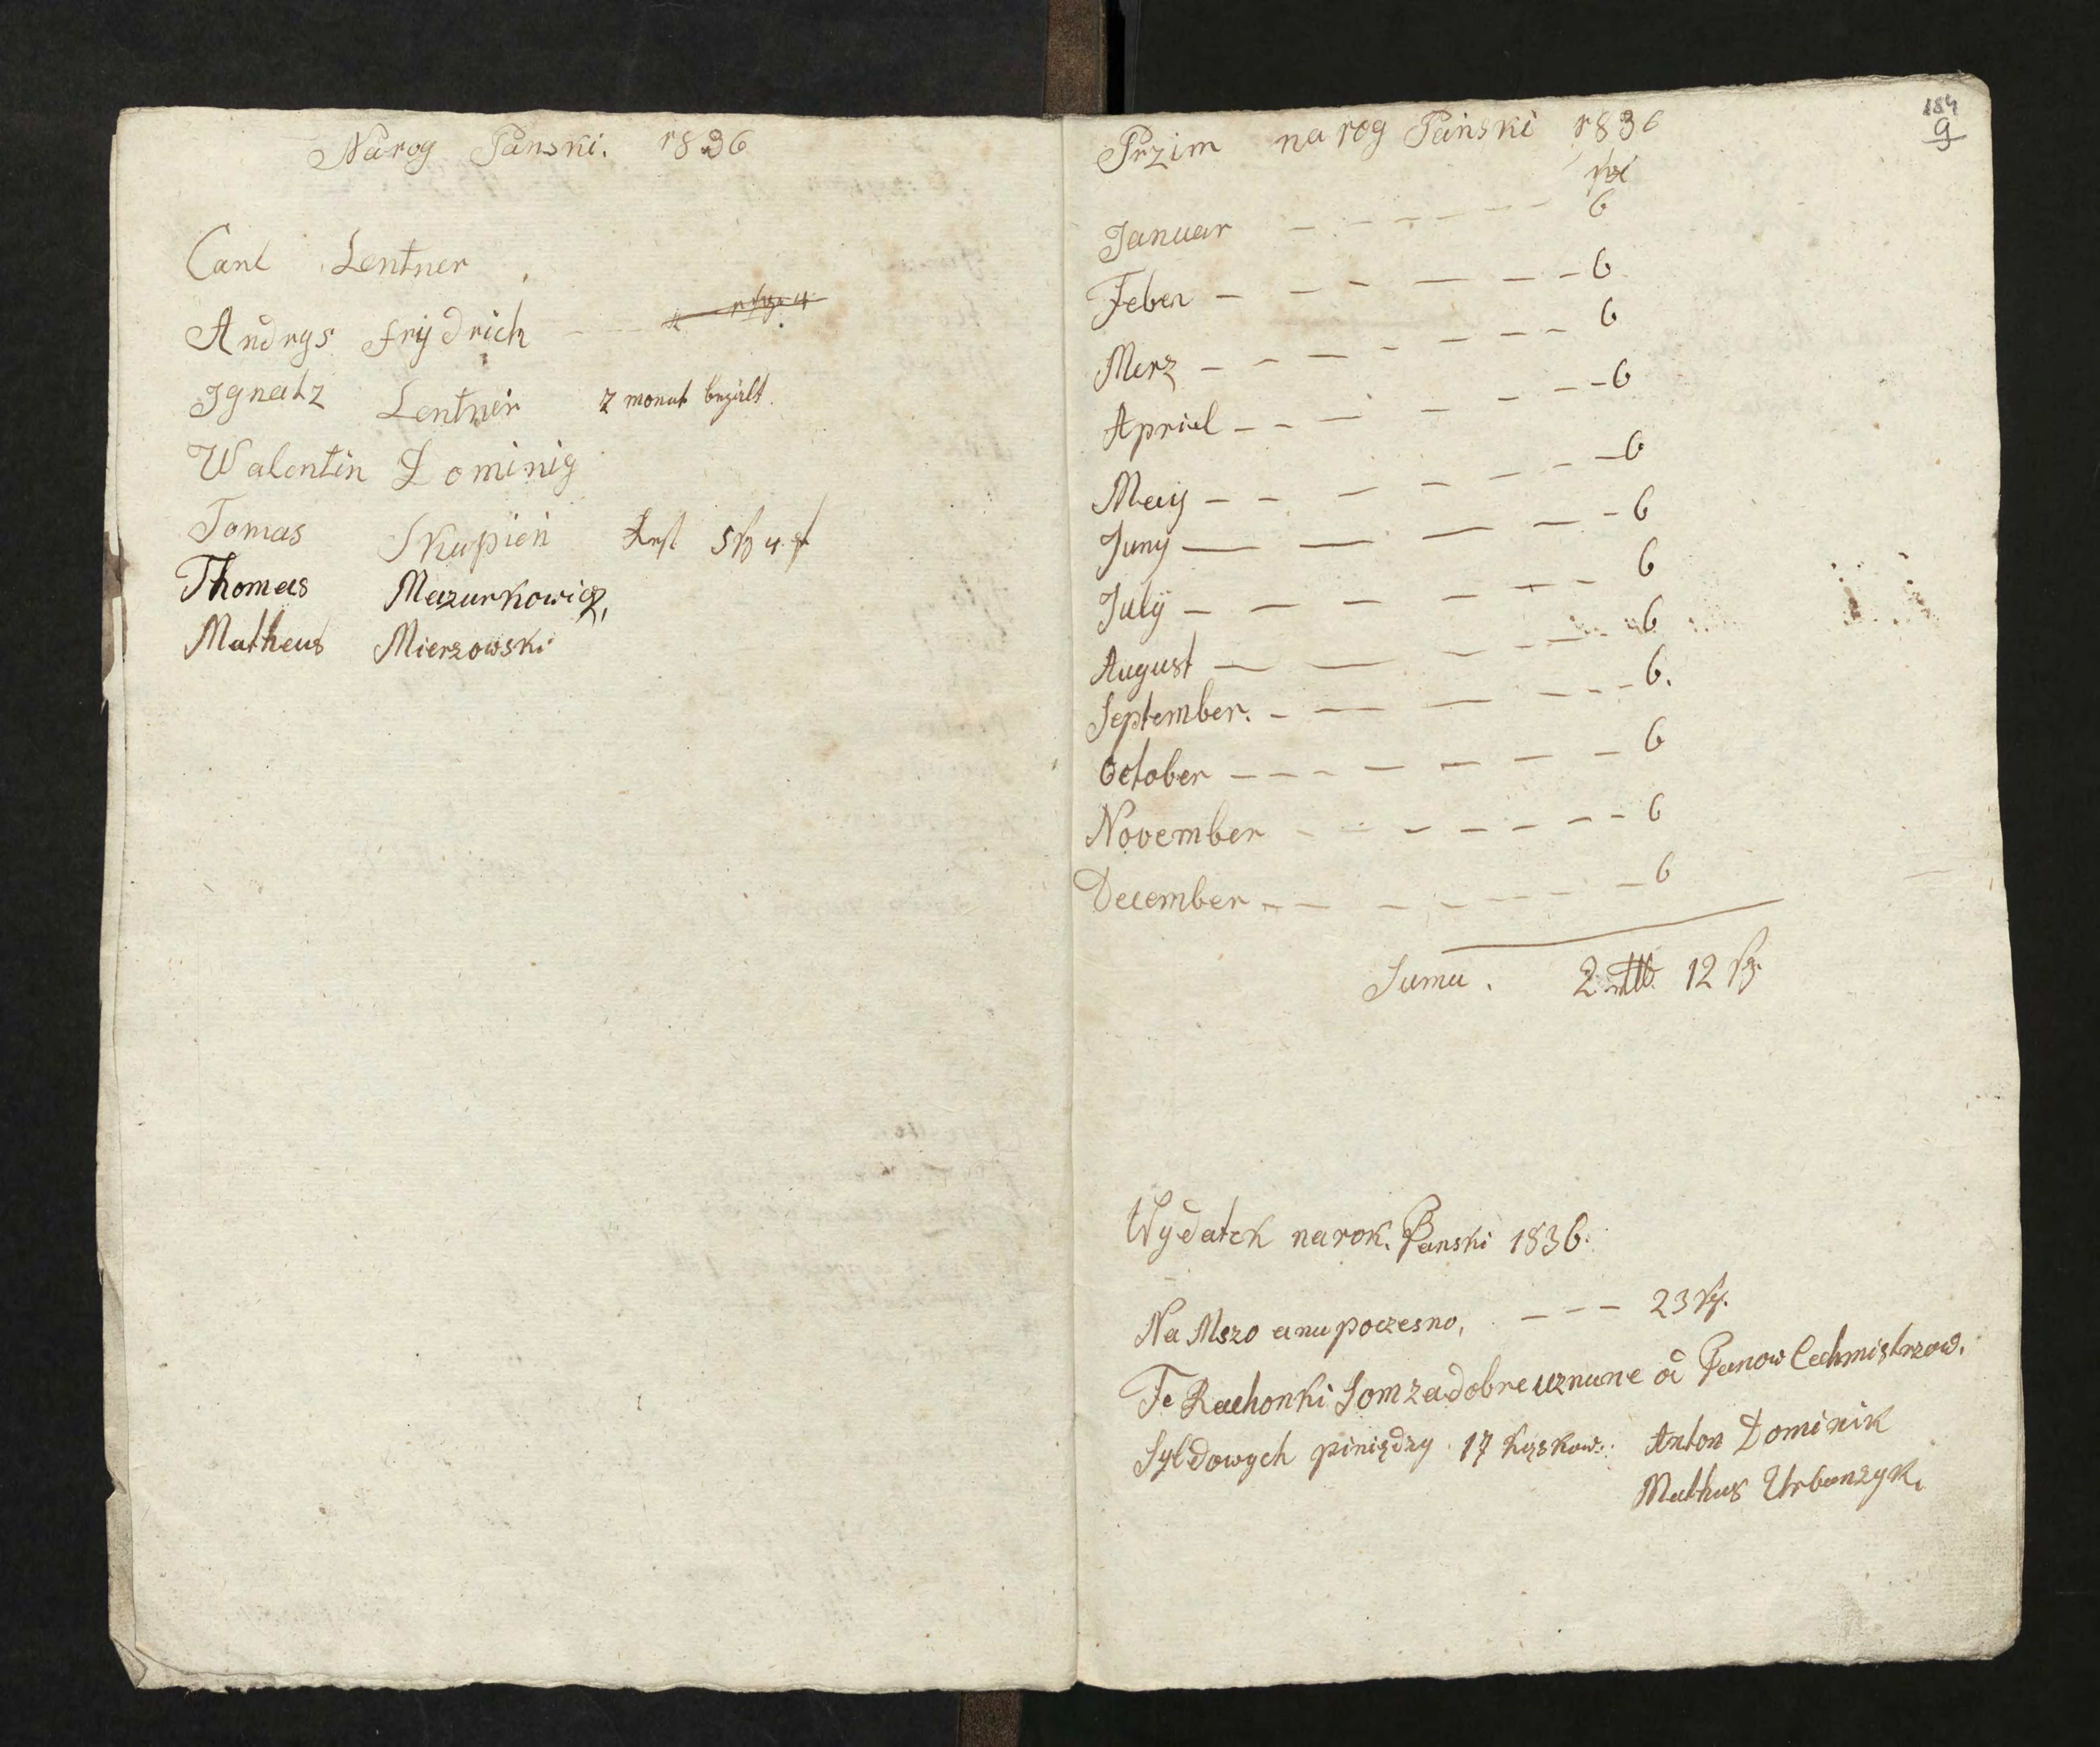 Na rog Panski. 1836
Carl Lentner
Andrys Frÿdrich
Ignatz Lentner 2 monat bezalt.
Walentin Dominig
Tomas Skupień Rest 5 sg 4
Thomas Mazurkowicz,
Matheus Mierzowski
184
9
Przim na rog Panski 1836
sg
Januar — — — — — — 6
Feber — — — — — — 6
Merz — — — — — — 6
Apriel — — — — — — 6
Maÿ — — — — — — 6
Junÿ — — — — — 6
Julÿ — — — — — — 6
August — — — — — 6
September. — — — — — 6.
October — — — — — — 6
November — — — — — — 6
December — — — — — — 6
Suma. 2 rtl 12 sg.
Wydatek na rok. Panski 1836.
Na Mszo ana poczesno, — — — 23 sg.
Te Rachonki Som za dobre uznane od Panow Cechmistrzow.
Syldowych piniędzy 17 kąskow: Anton Dominik
Mathus Urbanzyk.